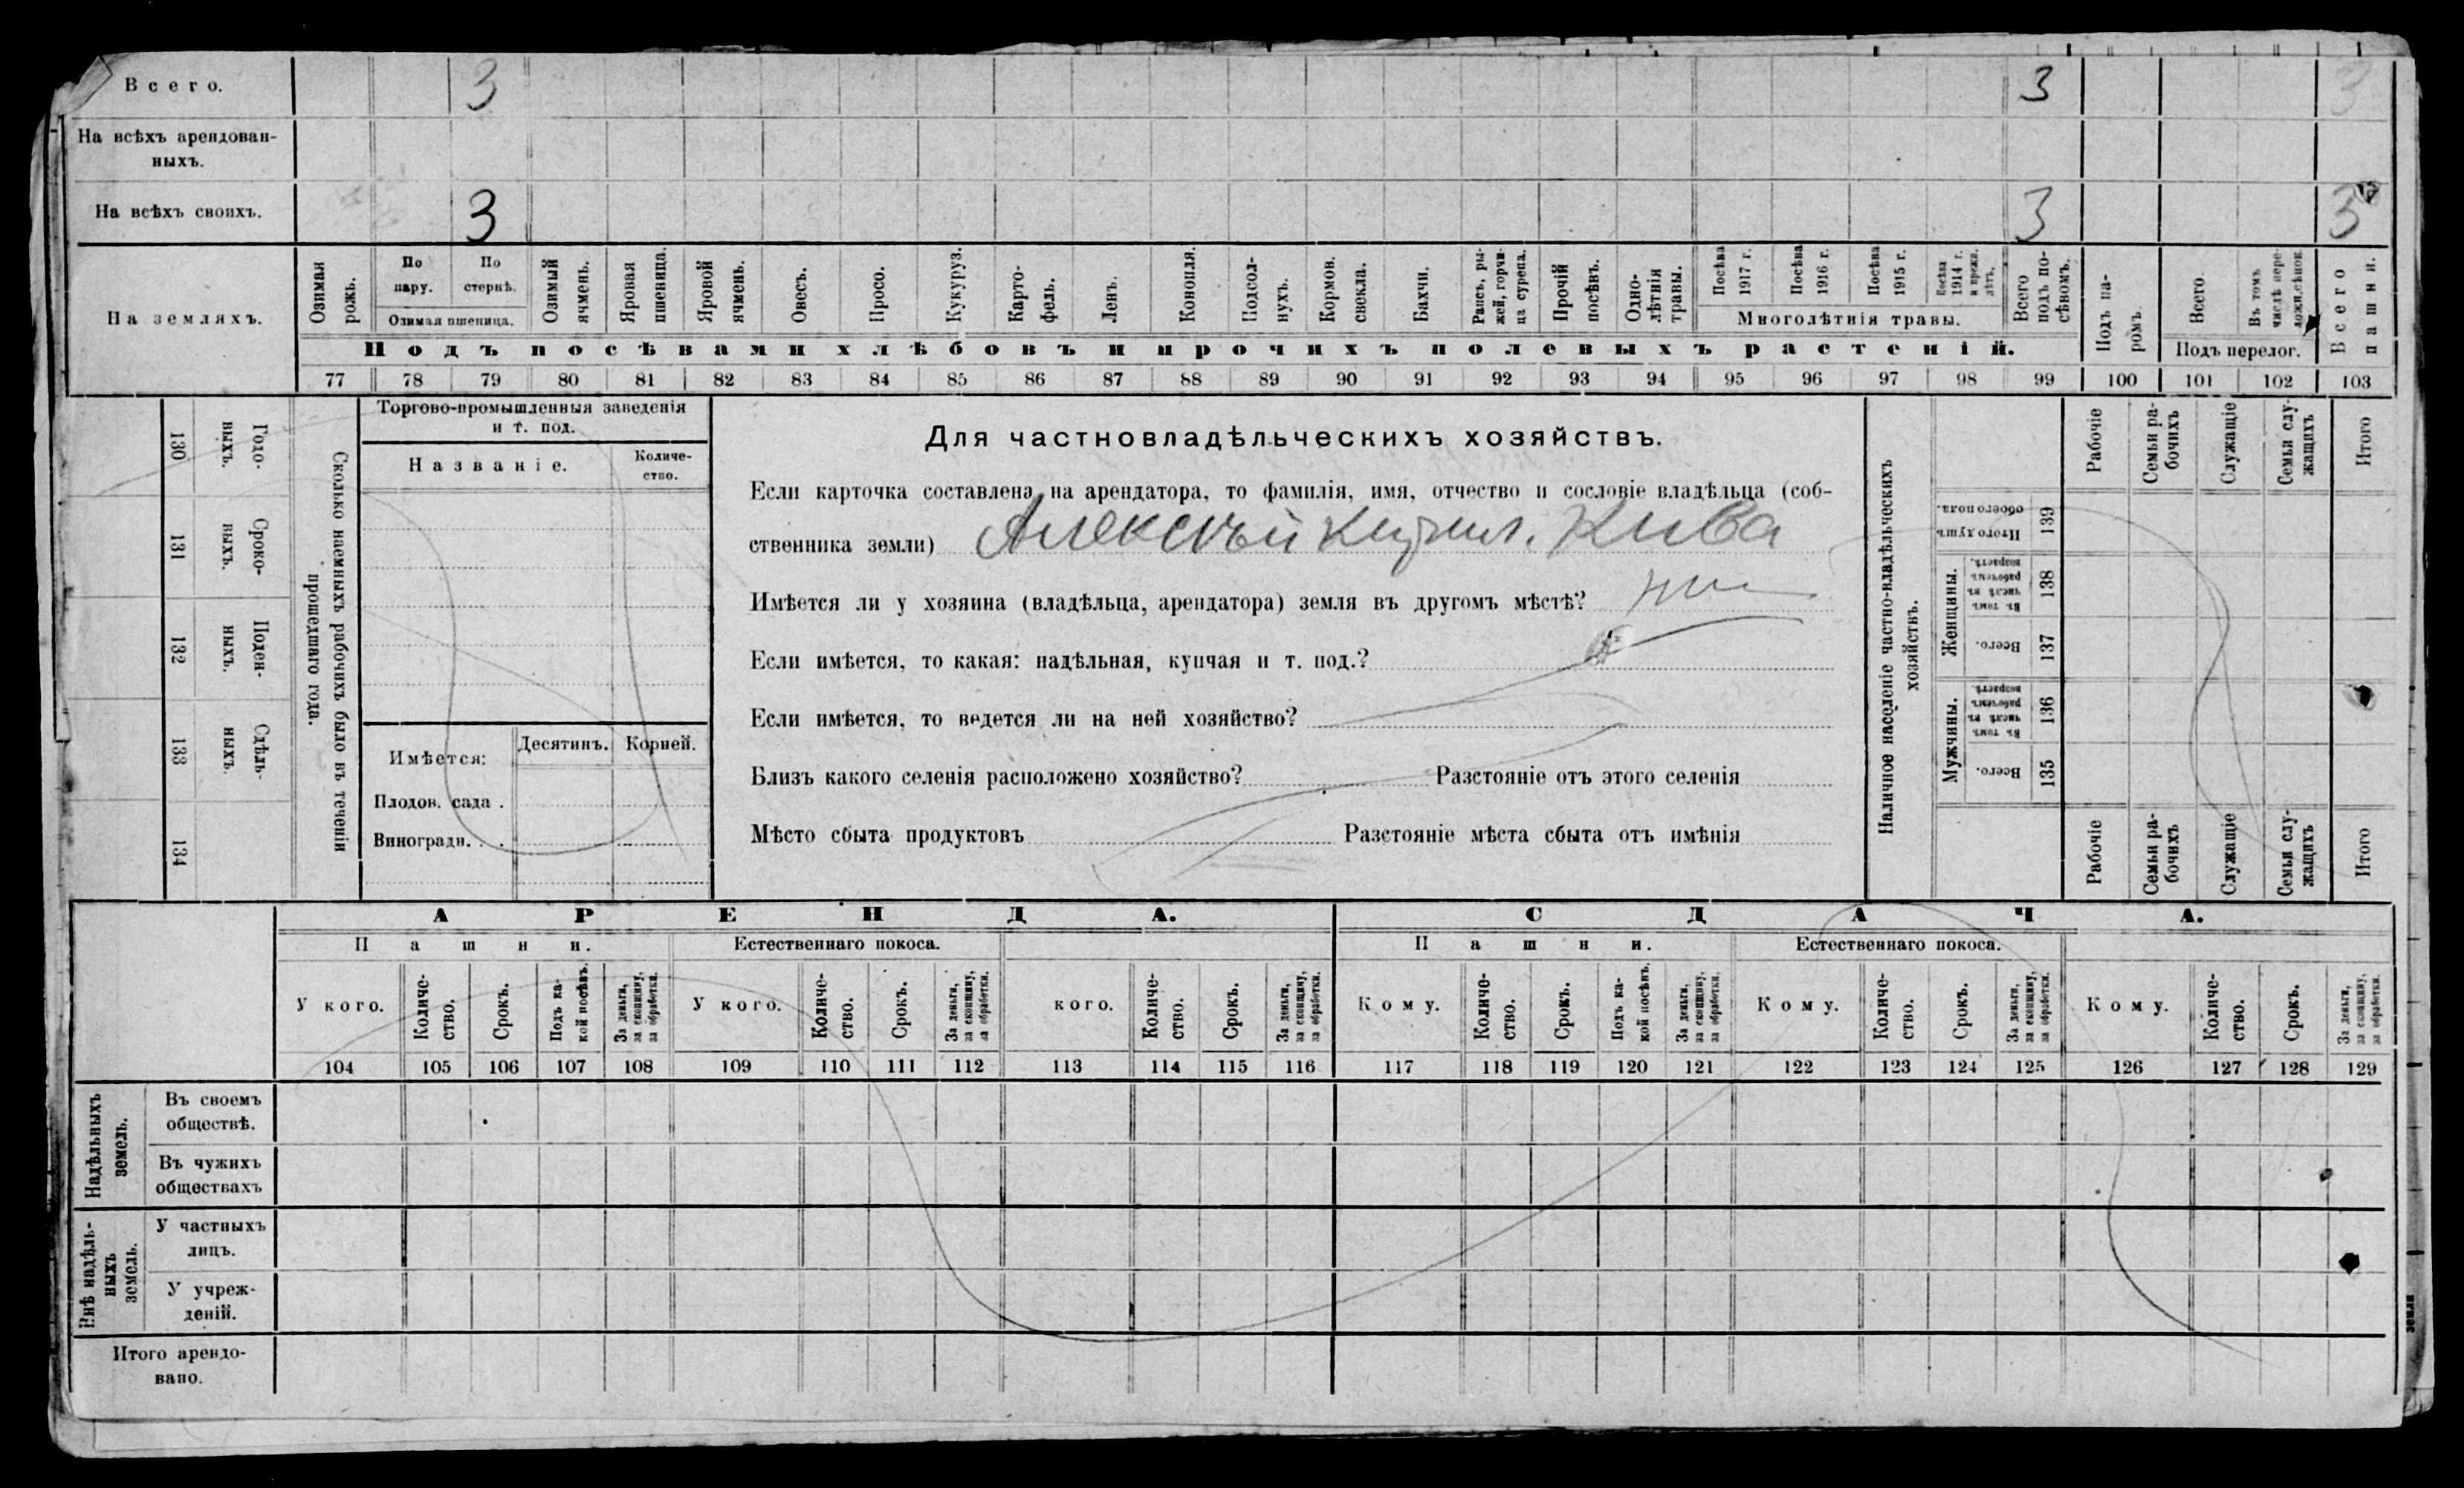 Всего. 3 3 3
На всѣхъ арендован-
ныхъ.
На всѣхъ своихъ. 3 3 3
На земляхъ.
Озимая рожь.
По пару.
По стернѣ.
Озимая пшеница.
Озимый ячмень.
Яровая пшеница.
Яровой ячмень.
Овесъ.
Просо.
Кукуруз.
Карто-
фель.
Ленъ.
Конопля.
Подсол-
нухъ.
Кормов.
свекла.
Бахчи.
Рапсъ, ры-
жей, горчи-
ца сурепа.
Прочій
посѣвъ.
Одно-
лѣтнія
травы.
Посѣва
1917 г.
Посѣва
1916 г.
Посѣва
1915 г.
Посѣва
1914 г.
и прежн.
лѣтъ.
Многолѣтнія травы.
Всего
подъ по-
сѣвомъ.
Подъ па-
ромъ.
Всего.
Въ томъ
числѣ пере-
Подъ перелог.
Всего
пашни.
Подъ посѣвами хлѣбовъ и прочихъ полевыхъ растеній.
77 78 79 80 81 82 83 84 85 86 87 88 89 90 91 92 93 94 95 96 97 98 99 100 101 102 103
130 131 132 133 134
Годо-
выхъ.
Сроко-
выхъ.
Поден-
ныхъ.
Сдѣль-
ныхъ.
Сколько наемныхъ рабочихъ было въ теченіи
прошедшаго года.
Торгово-промышленныя заведенія
и т. под.
Названіе.
Количе-
ство.
Имѣется:
Десятинъ. Корней.
Плодов. сада .
Виноградн. . .
Для частновладѣльческихъ хозяйствъ.
Если карточка составлена на арендатора, то фамилія, имя, отчество и сословіе владѣльца (соб-
ственника земли) Алексѣй Кирил. Кива
Имѣется ли у хозяина (владѣльца, арендатора) земля въ другомъ мѣстѣ?
Если имѣется, то какая: надѣльная, купчая и т. под.?
Если имѣется, то ведется ли на ней хозяйство?
Близъ какого селенія расположено хозяйство? Разстояніе отъ этого селенія
Мѣсто сбыта продуктовъ Разстояніе мѣста сбыта отъ имѣнія
Наличное населеніе частно-владѣльческихъ
хозяйствъ.
Итого душъ
обоего пола.
139
Женщины.
Въ томъ
числѣ въ
рабочемъ
возрастѣ.
138
Всего.
137
Мужчины.
Въ томъ
числѣ въ
рабочемъ
возрастѣ.
136
Всего.
135
Рабочіе
Семьи ра-
бочихъ
Служащіе
Семьи слу-
жащихъ
Итого
Рабочіе
Семьи ра-
бочихъ
Служащіе
Семьи слу-
жащихъ
Итого
АРЕНДА. СДАЧА.
Пашни. Естественнаго покоса. Пашни. Естественнаго покоса.
У кого.
Количе-
ство.
Срокъ.
Подъ ка-
кой посѣвъ.
За деньги,
за скопщину,
за обработки.
У кого.
Количе-
ство.
Срокъ.
За деньги,
за скопщину,
за обработки.
кого.
Количе-
ство.
Срокъ.
За деньги,
за скопщину,
за обработки.
Кому.
Количе-
ство.
Срокъ.
Подъ ка-
кой посѣвъ.
За деньги,
за скопщину,
за обработки.
Кому.
Количе-
ство.
Срокъ.
За деньги,
за скопщину,
за обработки.
Кому.
Количе-
ство.
Срокъ.
За деньги,
за скопщину,
за обработки.
104 105 106 107 108 109 110 111 112 113 114 115 116 117 118 119 120 121 122 123 124 125 126 127 128 129
Надѣльныхъ
земель.
Въ своемъ
обществѣ.
Въ чужихъ
обществахъ
Внѣ надѣль-
ныхъ
земель.
У частныхъ
лицъ.
У учреж-
деній.
Итого арендо-
вано.